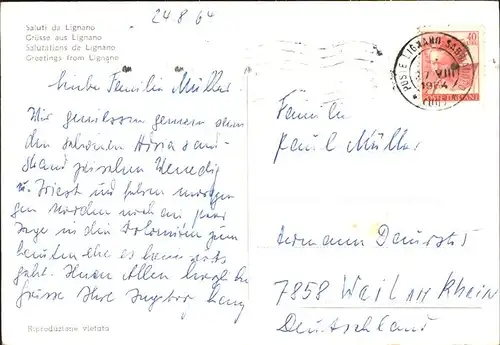 24 8 64
Saluti da Lignano
Grüsse aus Lignano
Salutations de Lignano
Greetings from Lignano
40
POSTE LIGNANO SABBIADORO
VIII
1964
POSTE ITALIANE
Liebe Familie Müller.
Wir geniessen gemeinsam
den schönen Adriasand-
strand zwischen Venedig
u. Triest und fahren morgen
gen Norden noch ein paar
Tage in die Dolomiten zum
ehe es heimwärts
geht. Ihnen Allen herzliche
Grüsse Ihre
Familie
Paul Müller
Hermann Daurstr
7858 Weil am Rhein
Deutschland
Riproduzione vietata